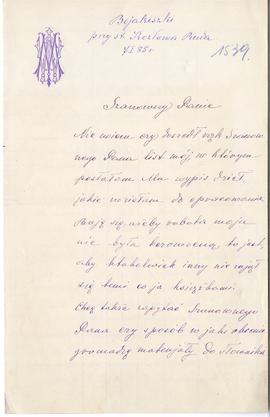 Bojakiszki
przy st. Kozłowa Ruda
7 I 85 r
1539.
Szanowny Panie
Nie wiem czy doszedł rąk Szanow
nego Pana list mój, w którym
posłałam Mu wypis dzieł,
jakie wzięłam do opracowania
Boję się ażeby robota moja
nie była bezowocną to jest,
aby ktokolwiek inny nie zajął
się temi co ja książkami.
Chcę także zapytać Szanownego
Pana czy sposób w jaki obecnie
gromadzę materjały do Słownika